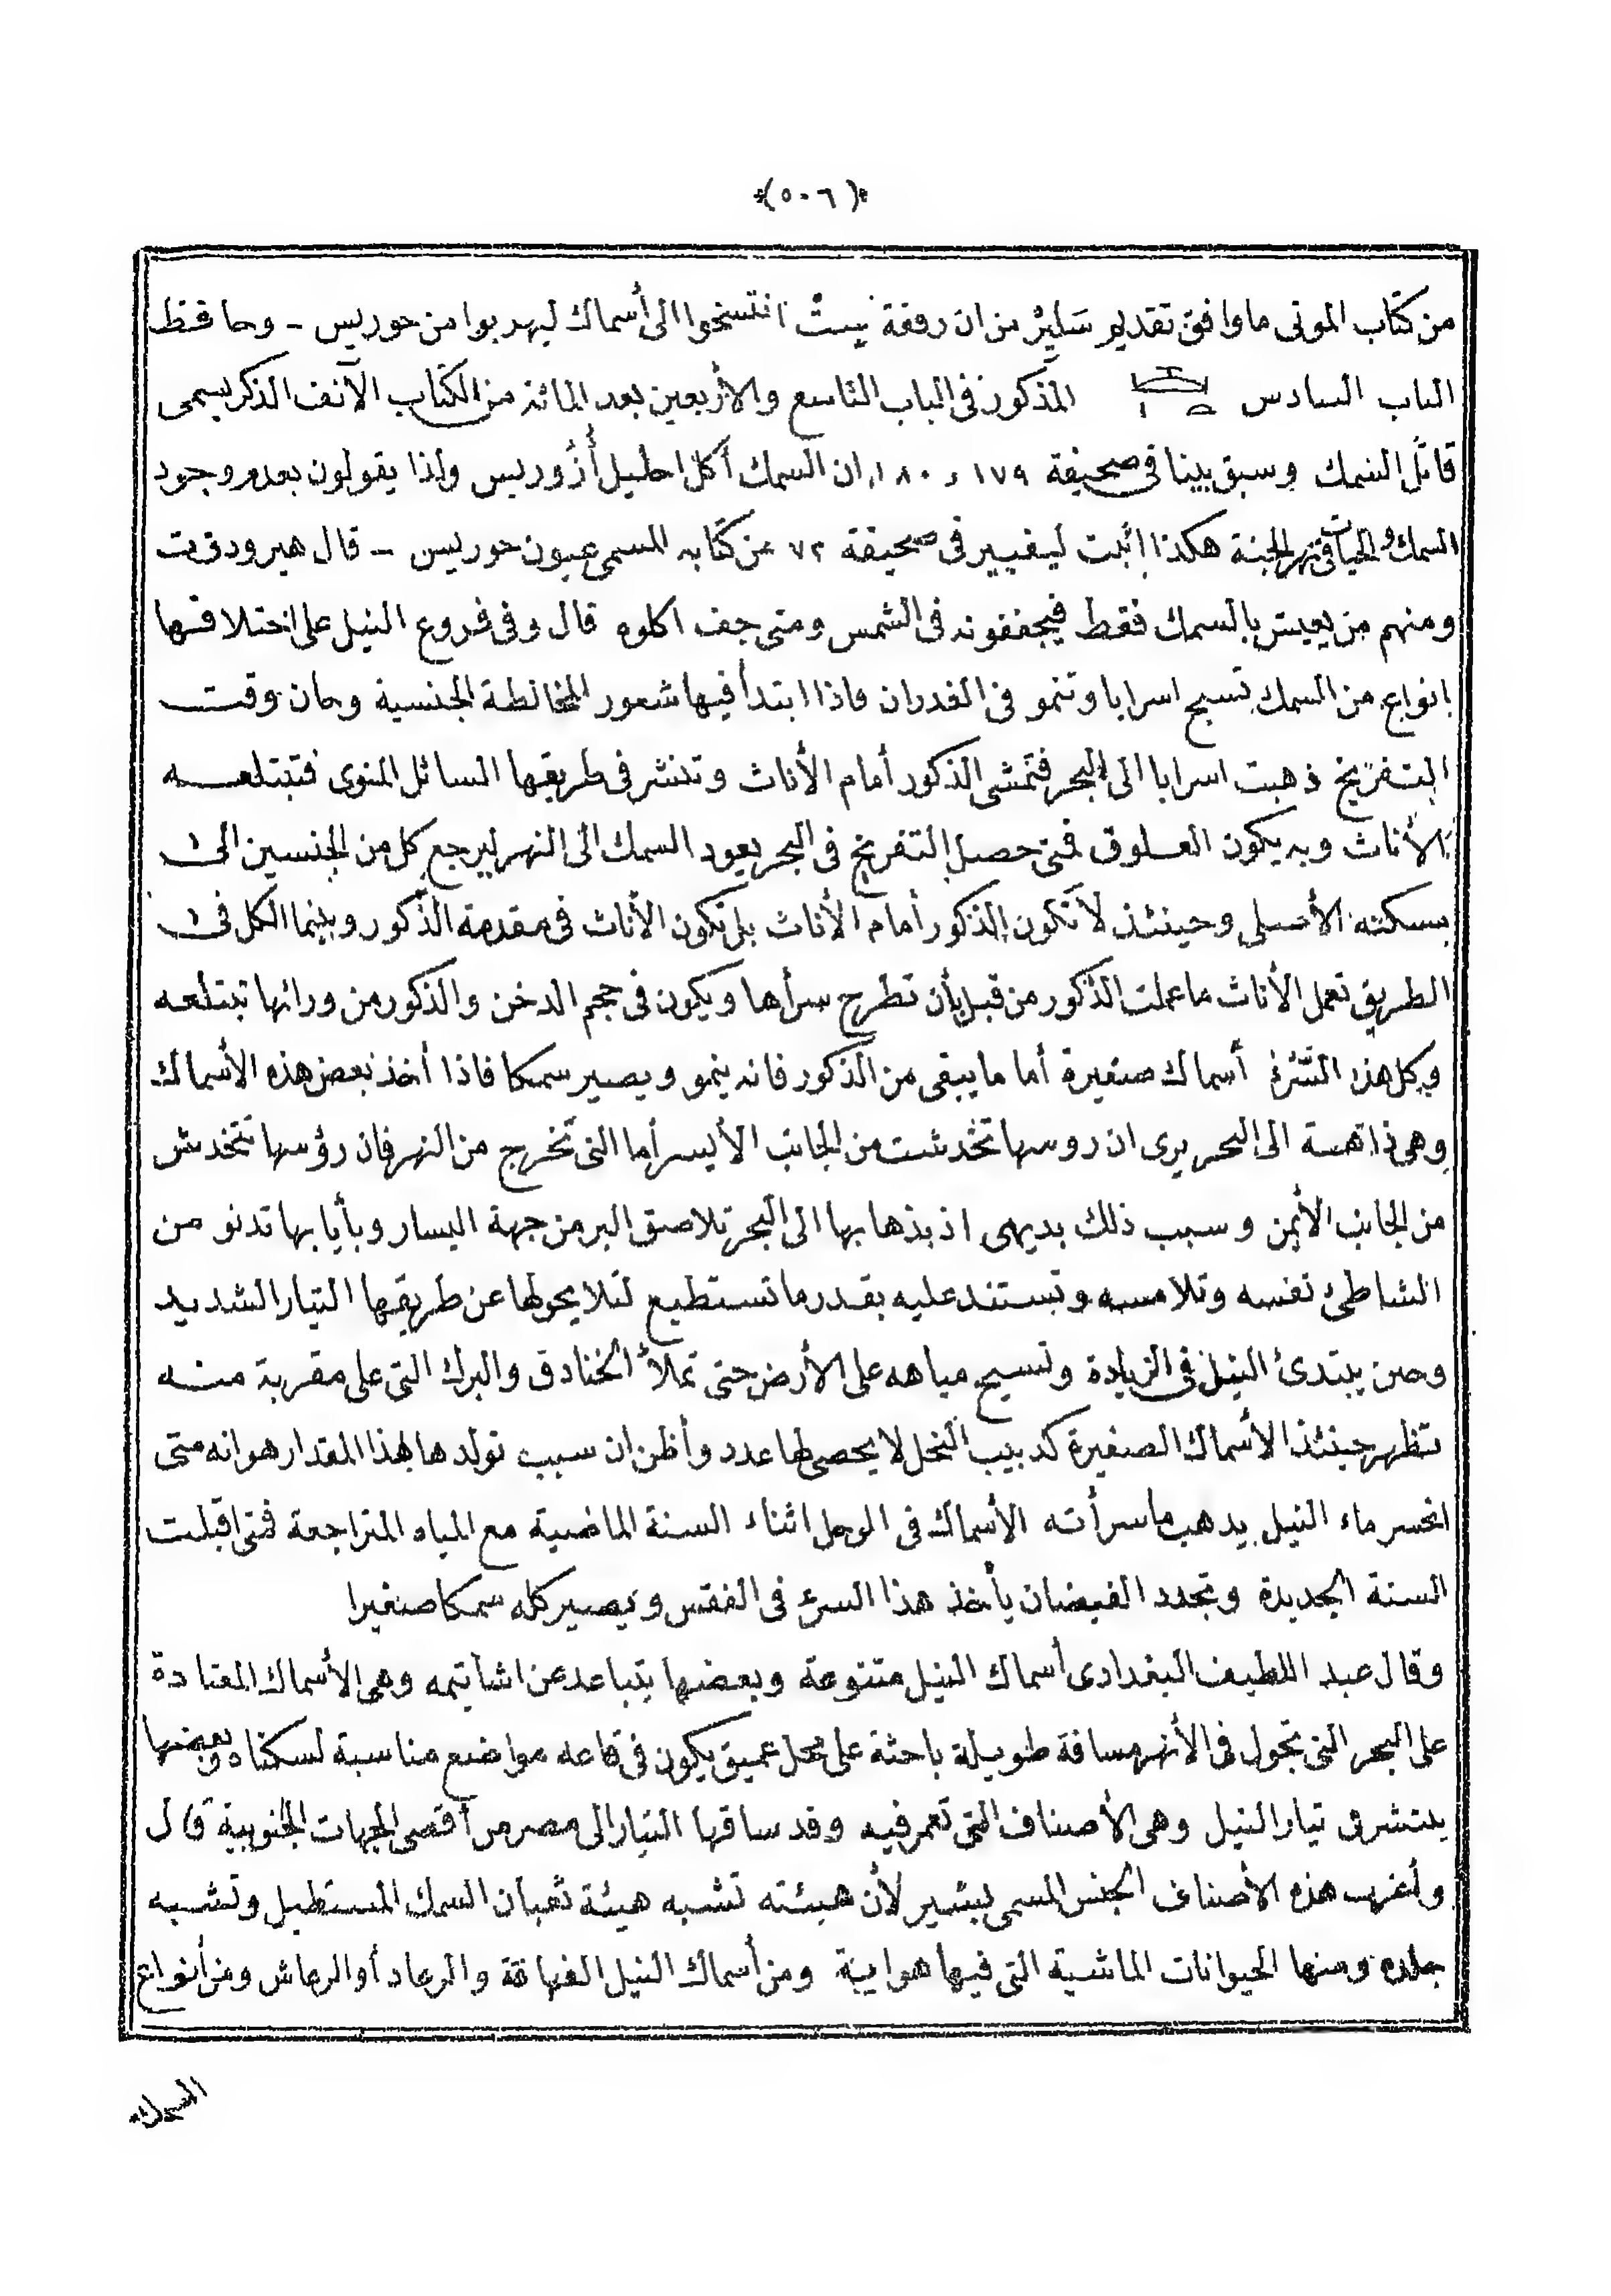 ﴿(٥٠٦)﴾
من كتاب الموتى ما وافق تقديم سَلير من ان رفقة سِتْ انتسخوا الى أسماك ليهربوا من حوريس - وحافظ
الباب السادس المذكور فى الباب التاسع والأربعين بعد المائة من الكتاب الآنف الذكر يسمى
قاتل السمك وسبق بينا فى صحيفة ١٧٩ و ١٨٠ ان السمك أكل احليل أُزُوريس ولذا يقولون بعدم وجود
السمك والحيات فى نهر الجنة هكذا اثبت ليفيير فى صحيفة ٧٢ من كتابه المسمى عيون حوريس - قال هيرودوت
ومنهم من يعيش بالسمك فقط فيجففونه فى الشمس ومتى جف اكلوه قال وفى فروع النيل على اختلافها
انواع من السمك تسبح اسرابا وتنمو فى الغدران فاذا ابتدأ فيها شعور المخالطة الجنسية وحان وقت
التفريخ ذهبت اسرابا الى البحر فتمشى الذكور أمام الأناث وتنشر فى طريقها السائل المنوى فتبتلعه
الأناث وبه يكون العلوق فمتى حصل التفريخ فى البحر يعود السمك الى النهر ليرجع كل من الجنسين الى
مسكنه الأصلى وحينئذ لا تكون الذكور أمام الأناث بل تكون الأناث فى مقدمة الذكور وبينما الكل فى
الطريق تعمل الأناث ما عملت الذكور من قبل بأن تطرح سرأها ويكون فى حجم الدخن والذكور من ورائها تبتلعه
وكل هذا السَّرْءُ أسماك صغيرة أما ما يبقى من الذكور فانه ينمو ويصير سمكا فاذا أخذ بعض هذه الأسماك
وهى ذاهبة الى البحر يرى ان روسها تخدشت من الجانب الأيسر أما التى تخرج من النهر فان رؤسها تتخدش
من الجانب الأيمن وسبب ذلك بديهى اذ بذهابها الى البحر تلاصق البر من جهة اليسار وبأيابها تدنو من
الشاطئ نفسه وتلامسه وتستند عليه بقدر ما تستطيع لئلا يحولها عن طريقها التيار الشديد
وحين يبتدئ النيل فى الزيادة وتسيح مياهه على الأرض حتى تملأ الخنادق والبرك التى على مقربة منه
تظهر حينئذ الأسماك الصغيرة كدبيب النحل لا يحصى لها عدد وأظن ان سبب تولدها بهذا المقدار هو انه متى
انحسر ماء النيل يدهب ما سرأته الأسماك فى الوحل اثناء السنة الماضية مع المياه المتراجعة فمتى اقبلت
السنة الجديدة وتجدد الفيضان يأخذ هذا السرء فى الفقس ويصير كله سمكا صغيرا
وقال عبد اللطيف البغدادى أسماك النيل متنوعة وبعضها يتباعد عن اشاتيمه وهى الأسماك المعتادة
على البحر التى تجول فى الأنهر مسافة طويلة باحثة على محل عميق يكون فى قاعه مواضع مناسبة لسكناه وبعضها
ينتشر فى تيار النيل وهى الأصناف التى تعمر فيه وقد ساقها التيار الى مصر من أقصى الجهات الجنوبية قال
وأغرب هذه الأصناف الجنس المسمى ببشير لأن هيئته تشبه هيئة ثعبان السمك المستطيل وتشبه
جلده ومنها الحيوانات الماشية التى فيها هوايية ومن أسماك النيل الفهاقة والرعاد أو الرعاش ومن أنواع
السمك